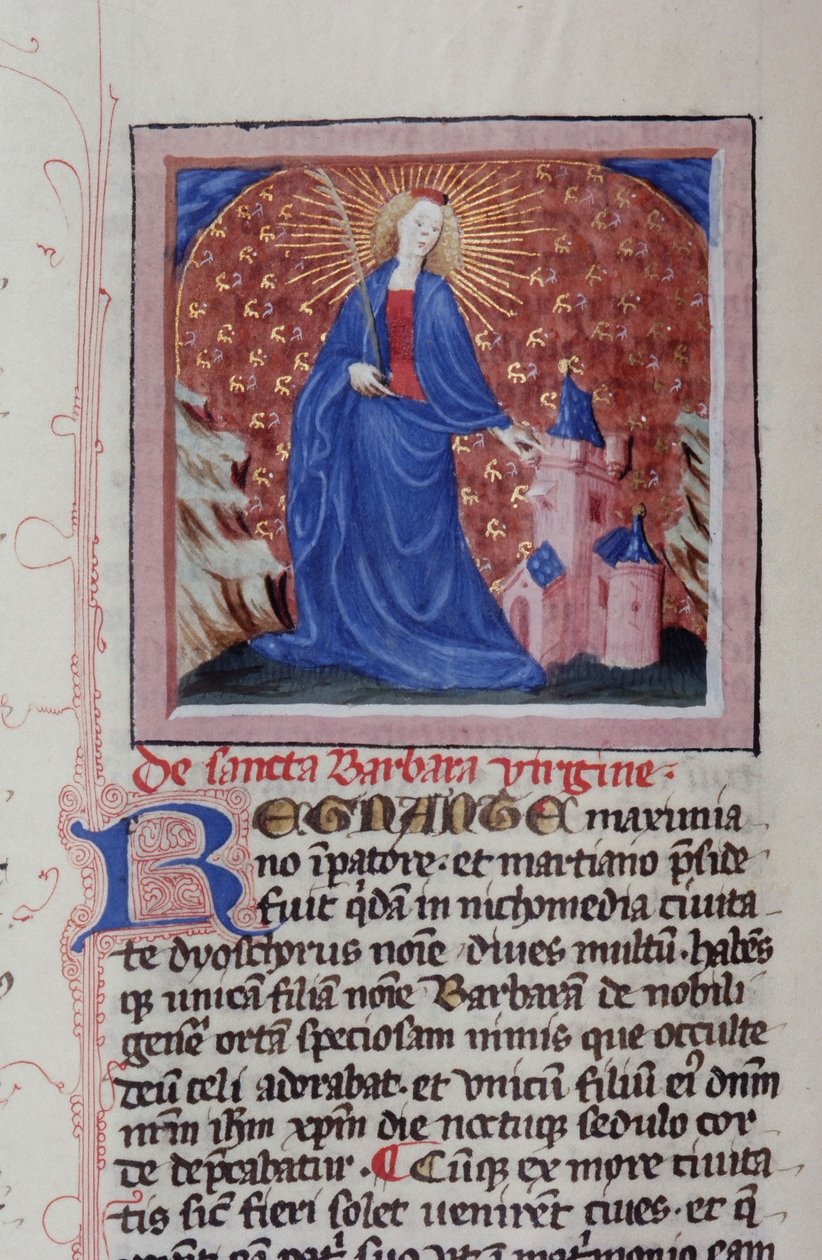 De sancta Barbara virgine.
REGNANTE maximia
no īpatore. et martiano p̄side
fuit q̄dā in nichomedia ciuita
te dyoschorus noīe diues multū. habēs
qꝫ unicā filiā noīe Barbarā de nobili
gen̄e ortā speciosam nimis que occulte
deū celi adorabat. et vnicū filiū eiꝰ dn̄m
nr̄m ih̄m xp̄m die noctuqꝫ sedulo cor
de dep̄cabatur. ¶ Cūqꝫ ex more ciuita
tis sic̄ fieri solet uenirēt ciues. et q̄